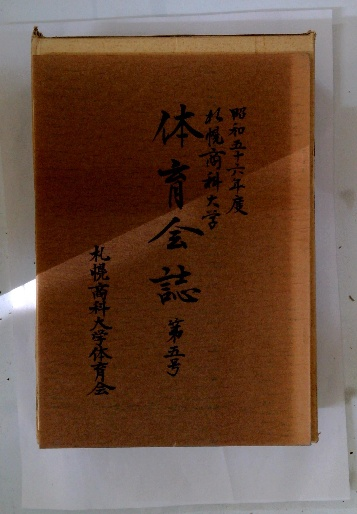 昭和五十六年度
札幌商科大学
体育会誌 第五号
札幌商科大学体育会